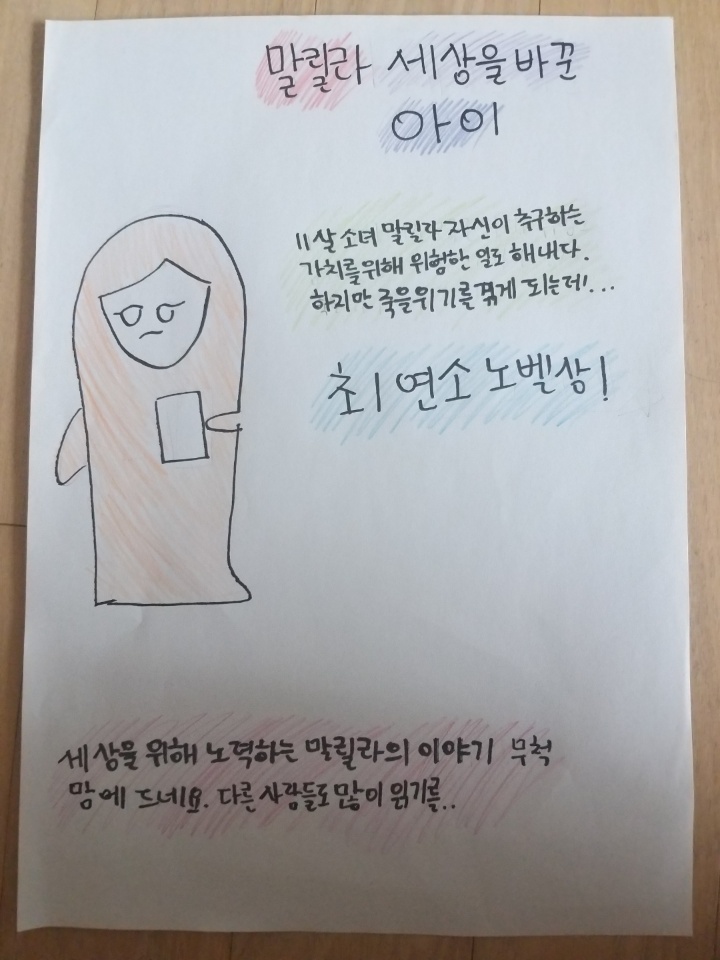 말릴라 세상을 바꾼
아이
11살 소녀 말릴라 자신이 추구하는
가치를 위해 위험한 일도 해내다.
하지만 죽을위기를 겪게 되는데!...
최연소 노벨상!
세상을 위해 노력하는 말릴라의 이야기 무척
맘에 드네요. 다른 사람들도 많이 읽기를..